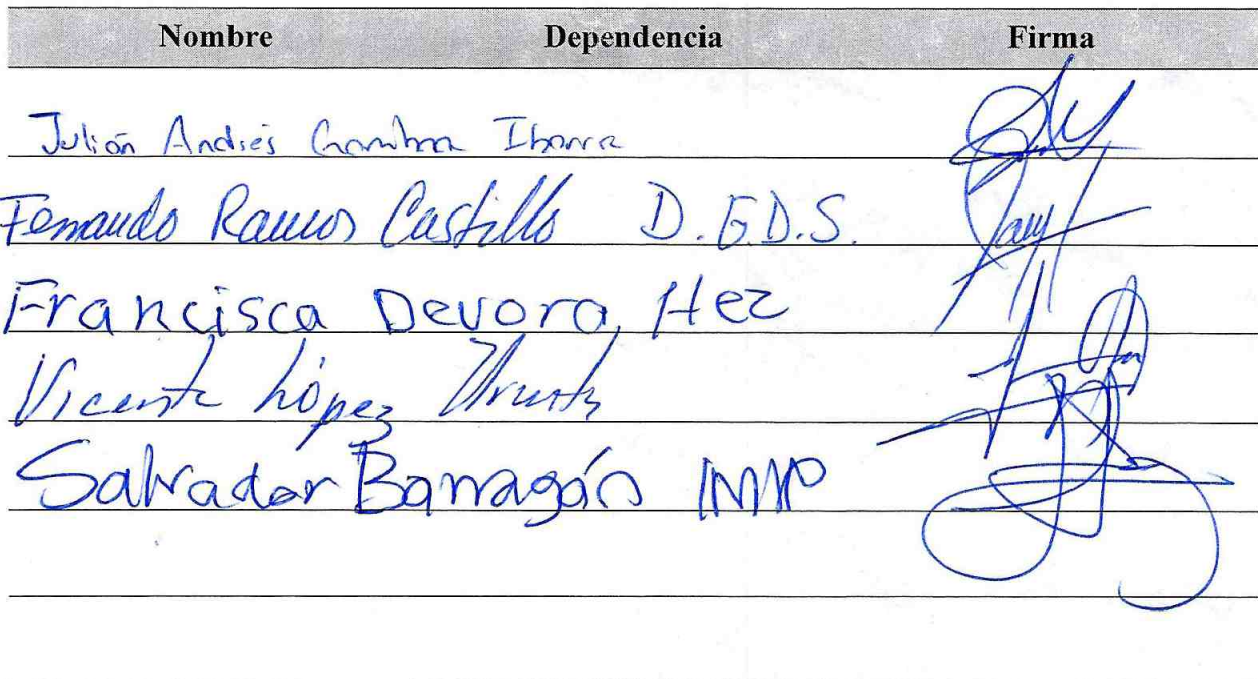 Nombre Dependencia Firma
Julián Andrés Ibarra
Fernando Ramos Castillo D.G.D.S.
Francisca Devora Hez
Vicente López
Salvador Barragán